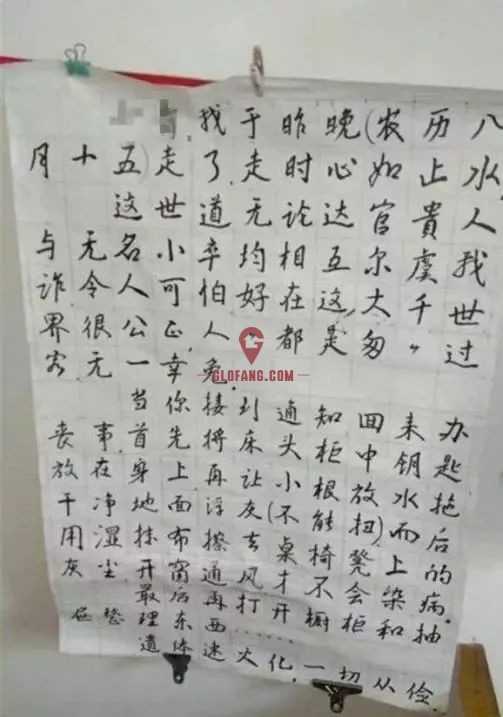 找于昨晚(农历八
月十五)走了,走时心如止水,
这世道无论达官贵人
与无名小卒均相互尔虞我
诈令人可怕,好在这大千世
界很公正,人人都是匆匆过
客,无一幸免.
当你接到通知回来办
丧事首先将床头柜中钥匙
放在身上再让小根放水拖
干净地面浮灰(不能扭)而后
用湿抹布擦去桌椅凳上的
灰尘开窗通风才不会染病.
最后再打开橱柜和抽
屉整理东西……
遗体速火化,一切从俭.
GLOFANG.COM